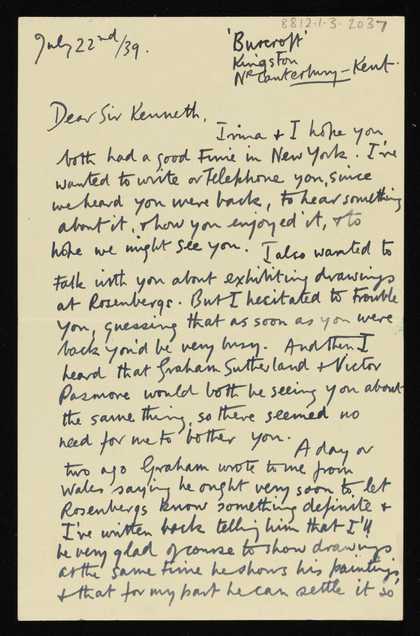 8812-1-3-2037
July 22nd/39.
'Burcroft'
Kingston
Nr Canterbury - Kent.
Dear Sir Kenneth,
Irina & I hope you
both had a good time in New York. I've
wanted to write or telephone you, since
we heard you were back, to hear something
about it, & how you enjoyed it, & to
hope we might see you. I also wanted to
talk with you about exhibiting drawings
at Rosenbergs. But I hecitated to trouble
you, guessing that as soon as you were
back you'd be very busy. And then I
heard that Graham Sutherland & Victor
Pasmore would both be seeing you about
the same thing, so there seemed no
need for me to bother you.
A day or
two ago Graham wrote to me from
Wales saying he ought very soon to let
Rosenbergs know something definite &
I've written back telling him that I'll
be very glad of course to show drawings
at the same time he shows his paintings,
& that for my part he can settle it so